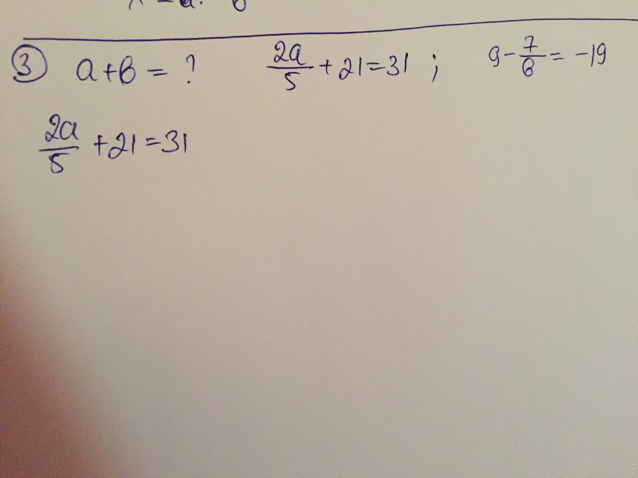 ③ a+b = ? 2a/5 + 21 = 31 ; 9 - 7/b = -19
2a/5 + 21 = 31